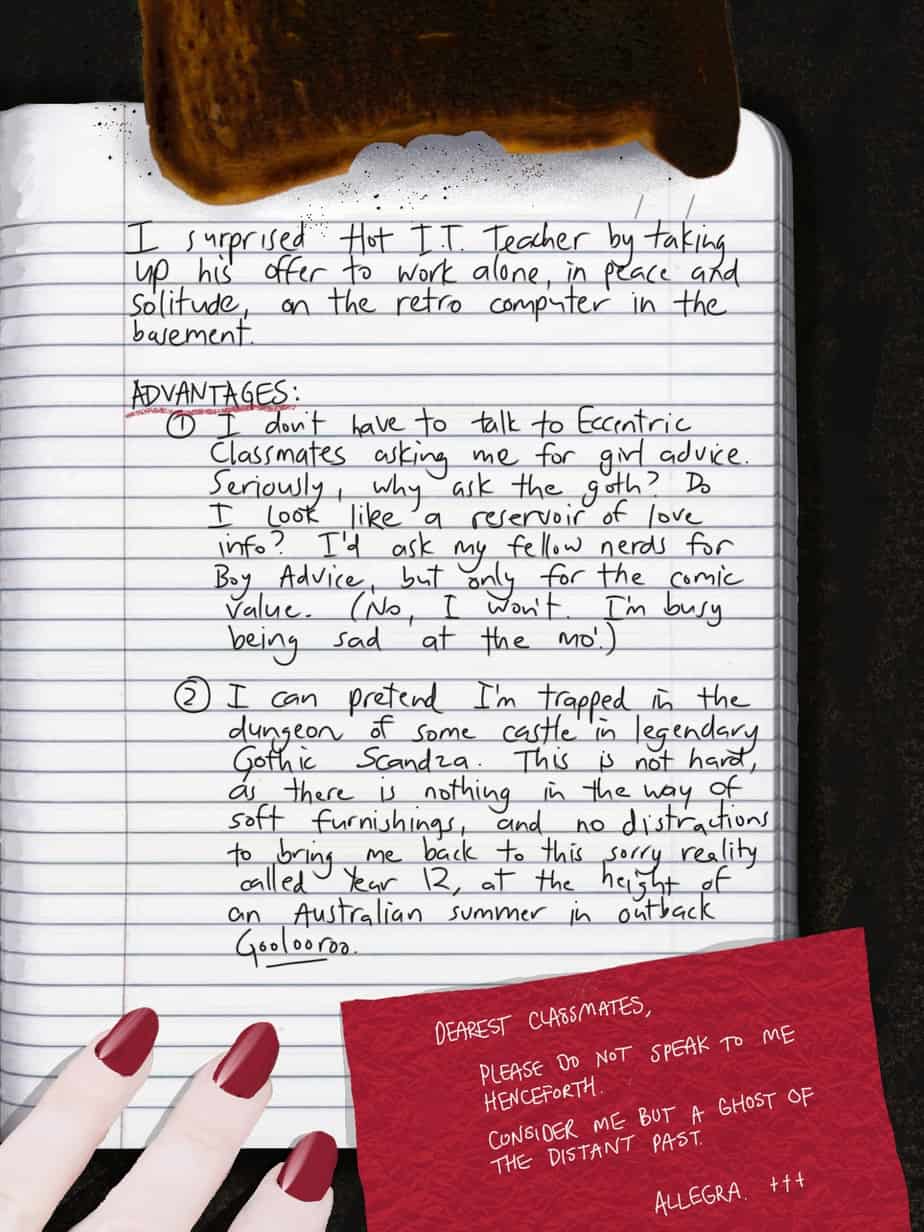 I surprised Hot I.T. Teacher by taking
up his offer to work alone, in peace and
solitude, on the retro computer in the
basement.
ADVANTAGES:
① I don't have to talk to Eccentric
Classmates asking me for girl advice.
Seriously, why ask the goth? Do
I look like a reservoir of love
info? I'd ask my fellow nerds for
Boy Advice, but only for the comic
value. (No, I won't. I'm busy
being sad at the mo'.)
② I can pretend I'm trapped in the
dungeon of some castle in legendary
Gothic Scandza. This is not hard,
as there is nothing in the way of
soft furnishings, and no distractions
to bring me back to this sorry reality
called Year 12, at the height of
an Australian summer in outback
Goolooroo.
DEAREST CLASSMATES,
PLEASE DO NOT SPEAK TO ME
HENCEFORTH.
CONSIDER ME BUT A GHOST OF
THE DISTANT PAST.
ALLEGRA. +++